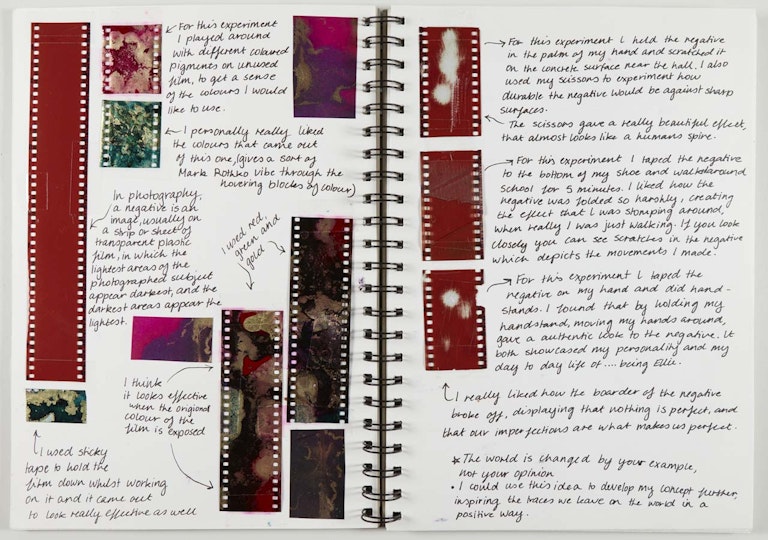 For this experiment
I played around
with different coloured
pigments on unused
film, to get a sense
of the colours I would
like to use.
I personally really liked
the colours that came out
of this one, (gives a sort of
Mark Rothko vibe through the
hovering blocks of colour)
In photography,
a negative is an
image, usually on
a strip or sheet of
transparent plastic
film, in which the
lightest areas of the
photographed subject
appear darkest, and the
darkest areas appear the
lightest.
I used red,
green and
gold
I think
it looks effective
when the origional
colour of the
film is exposed
I used sticky
tape to hold the
film down whilst working
on it and it came out
to look really effective as well
For this experiment I held the negative
in the palm of my hand and scratched it
on the concrete surface near the hall. I also
used my scissors to experiment how
durable the negative would be against sharp
surfaces.
The scissors gave a really beautiful effect,
that almost looks like a humans spire.
For this experiment I taped the negative
to the bottom of my shoe and walked around
school for 5 minutes. I liked how the
negative was folded so harshly, creating
the effect that I was stomping around,
when really I was just walking. If you look
closely you can see scratches in the negative
which depicts the movements I made.
For this experiment I taped the
negative on my hand and did hand-
stands. I found that by holding my
handstand, moving my hands around,
gave a authentic look to the negative. It
both showcased my personality and my
day to day life of .... being Ellie.
I really liked how the boarder of the negative
broke off, displaying that nothing is perfect, and
that our imperfections are what makes us perfect.
* The world is changed by your example,
not your opinion
• I could use this idea to develop my concept further,
inspiring the traces we leave on the world in a
positive way.